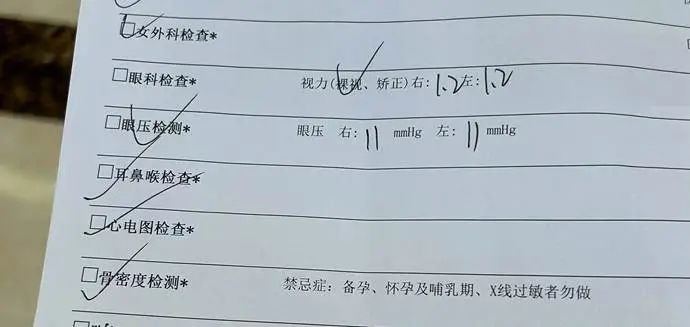 □女外科检查*
□眼科检查* 视力(裸视、矫正)右: 1.2 左: 1.2
□眼压检测* 眼压 右: 11 mmHg 左: 11 mmHg
□耳鼻喉检查*
□心电图检查*
□骨密度检测* 禁忌症: 备孕、怀孕及哺乳期、X线过敏者勿做